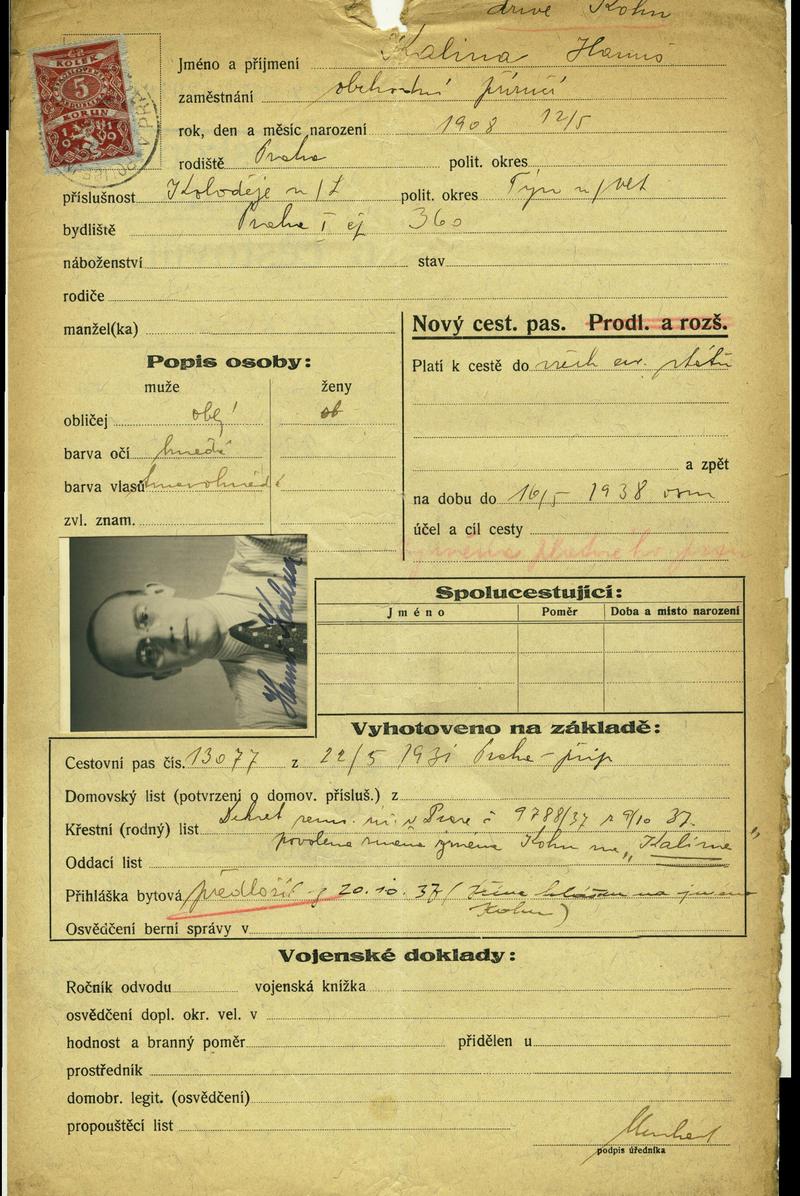 dříve Kohn
KOLEK
5
KORUN
Jméno a příjmení Kalina Hanuš
zaměstnání obchodní příručí
rok, den a měsíc narození 1908 12/5
rodiště Praha polit. okres
příslušnost Koloděje n/L polit. okres Týn n/Vlt
bydliště Praha I čj 360
náboženství stav
rodiče
manžel(ka)
Nový cest. pas. Prodl. a rozš.
Popis osoby:
muže ženy
Platí k cestě do všech evr. států
obličej obl ob
barva očí hnědé
barva vlasů tmavohnědé
a zpět
na dobu do 16/5 1938
zvl. znam.
účel a cíl cesty
Hanuš Kalina
Spolucestující:
Jméno Poměr Doba a místo narození
Vyhotoveno na základě:
Cestovní pas čís. 13077 z 22/5 1931 Praha
Domovský list (potvrzení o domov. přísluš.) z
Křestní (rodný) list Dekret zem. úř. v Praze č 9788/37 z 9/10 37.
povolena změna jména Kohn na „Kalina“
Oddací list
Přihláška bytová předložil 20.10.37 ( na jméno
Kohn)
Osvědčení berní správy v
Vojenské doklady:
Ročník odvodu vojenská knížka
osvědčení dopl. okr. vel. v
hodnost a branný poměr přidělen u
prostředník
domobr. legit. (osvědčení)
propouštěcí list
podpis úředníka